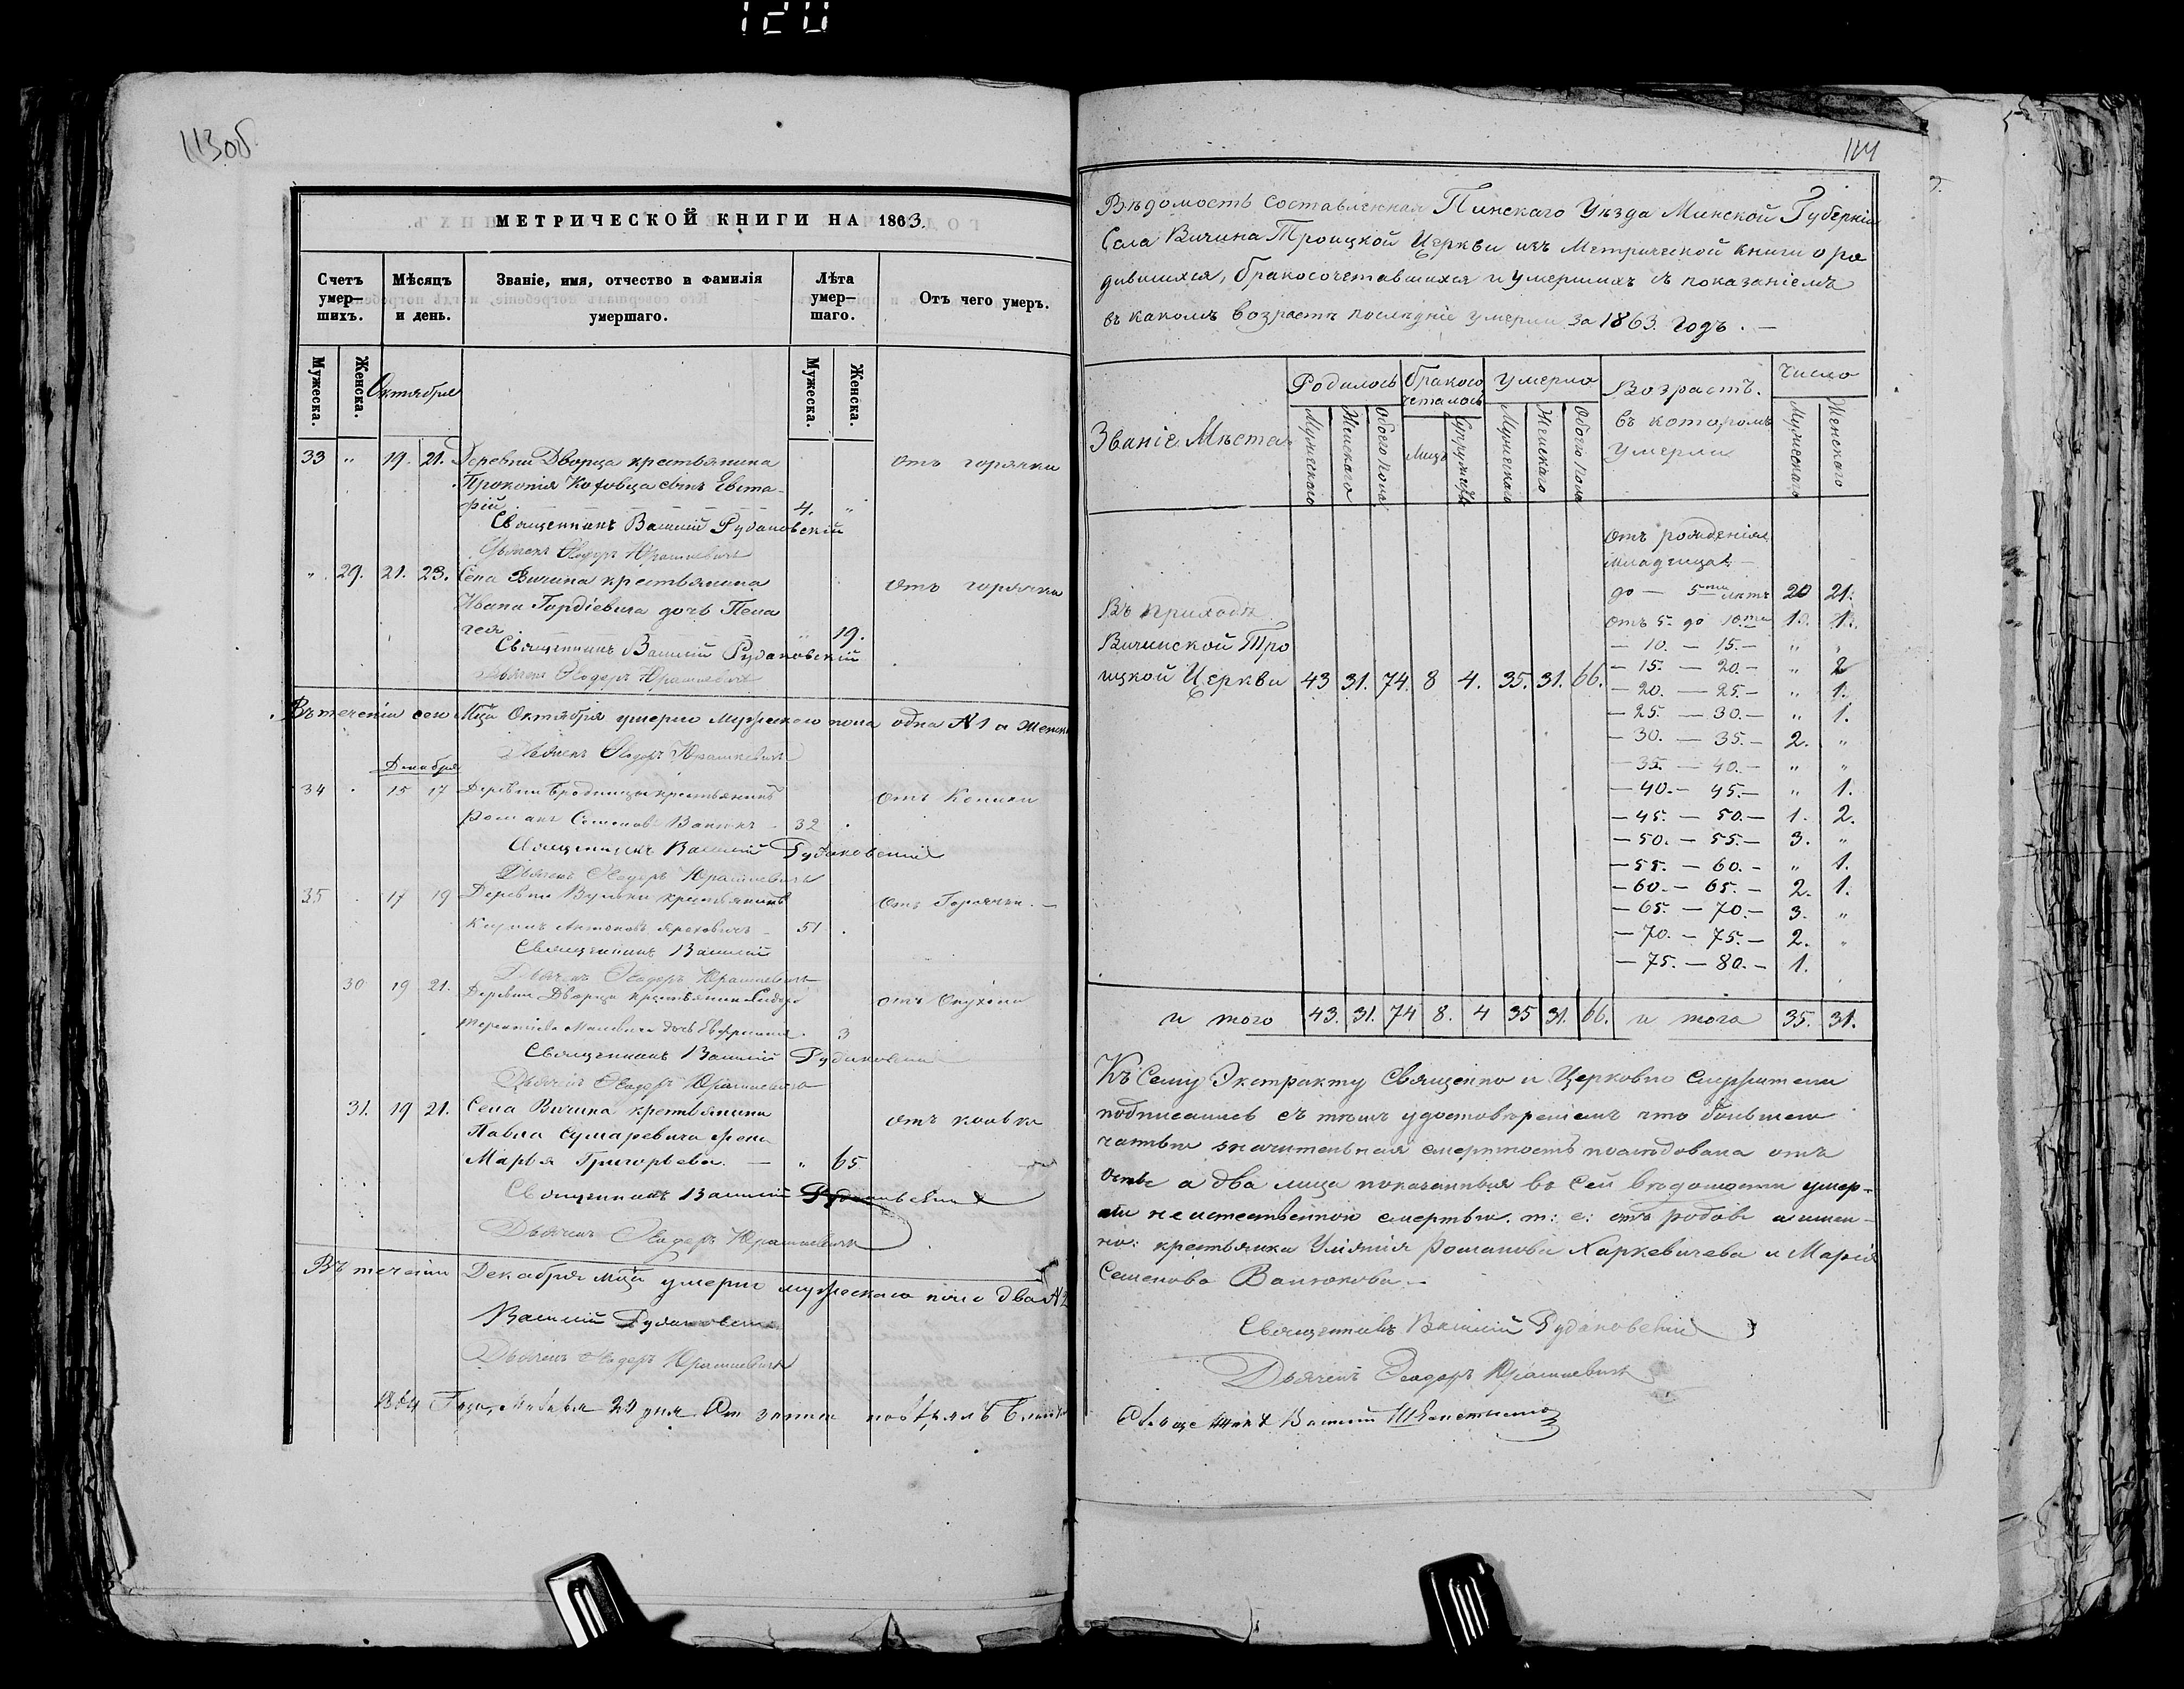 120
113об.
МЕТРИЧЕСКОЙ КНИГИ НА 1863.
Счетъ умер—шихъ.
Мѣсяцъ и день.
Званіе, имя, отчество и фамилія умершаго.
Лѣта умер—шаго.
Отъ чего умеръ.
Мужеска.
Женска.
Октября
Мужеска.
Женска.
33 " 19. 21. Деревни Дворца крестьянина отъ горячки
Прокопія сынъ Евста-
фій 4. "
Священникъ Василій Рудаковскій
Дьячекъ Ѳеодоръ Юрашкевичъ
" 29. 21. 23. Села Вичина крестьянина отъ горячки
Ивана Гордіевича дочь Пела
гея " 19.
Священникъ Василій Рудаковскій
Дьячекъ Ѳеодоръ Юрашкевичъ
Въ теченіи сего Мца Октября умерло мужескаго пола одна №1 а женск
Дьячекъ Ѳеодоръ Юрашкевичъ
Декабря
34 15 17 Деревни Бродницы крестьянинъ отъ
Романъ Семеновъ Ванюкъ 32
Священникъ Василій Рудаковскій
Дьячекъ Ѳеодоръ Юрашкевичъ
35 17 19 Деревни Вульки крестьянинъ отъ Горячки. —
Антоновъ 51
Священникъ Василій
Дьячекъ Ѳеодоръ Юрашкевичъ
30 19 21. Деревни Дворца крестьянина отъ Опухоли
дочь 3
Священникъ Василій Рудаковскій
Дьячекъ Ѳеодоръ Юрашкевичъ
31. 19 21. Села Вичина крестьянина отъ
Павла Сумаревича жена
Марья Григорьева. — " 65
Священникъ Василій Рудаковскій
Дьячекъ Ѳеодоръ Юрашкевичъ
Въ теченіи Декабря мца умерло мужескаго пола два №2
Василій Рудаковскій
Дьячекъ Ѳеодоръ Юрашкевичъ
1864 Года, 20 дня
114
Вѣдомость составленная Пинскаго Уѣзда Минской Губерніи
Села Вичина Троицкой Церкви изъ Метрической книги о ро
дившихся, бракосочетавшихся и умершихъ съ показаніемъ
въ какомъ возрастѣ послѣдніе умерли за 1863. годъ. —
Званіе Мѣста
Родилось
Мужескаго
Женскаго
Обоего пола
Бракосо четалось
Лицъ
Супружествъ
Умерло
Мужескаго
Женскаго
Обоего пола
Возрастъ.
въ которомъ
умерли
Число
Мужескаго
Женскаго
отъ рожденія
младенца —
до — 5ти лѣтъ 20 21.
отъ 5. до 10.ти 1. 1.
— 10. — 15. — " "
— 15. — 20. — " 2
— 20. — 25. — " 1.
— 25. — 30. — " 1.
— 30. — 35. — 2. "
— 35. — 40. — " "
— 40. — 45. — " 1.
— 45. — 50. — 1. 2.
— 50. — 55. — 3. "
— 55. — 60. — " 1.
— 60. — 65. — 2. 1.
— 65. — 70. — 3. "
— 70. — 75. — 2. "
— 75. — 80. — 1.
Въ приходѣ
Вичинской Тро
ицкой Церкви 43 31. 74. 8 4. 35. 31. 66.
и того 43. 31. 74 8. 4 35 31. 66. и того 35. 31.
Къ Сему Экстракту Священно и Церковно служители
подписались съ тѣмъ удостовѣреніемъ что большею
частью значительная смертность послѣдовала отъ
оспы а два лица показанныя въ сей вѣдомости умер-
ли неестественною смертью. т: е: отъ родовъ а имен-
но: крестьянка Романова Харкевичева и Марія
Семенова Ванюкова. —
Священникъ Василій Рудаковскій
Дьячекъ Ѳеодоръ Юрашкевичъ
Священникъ Василій